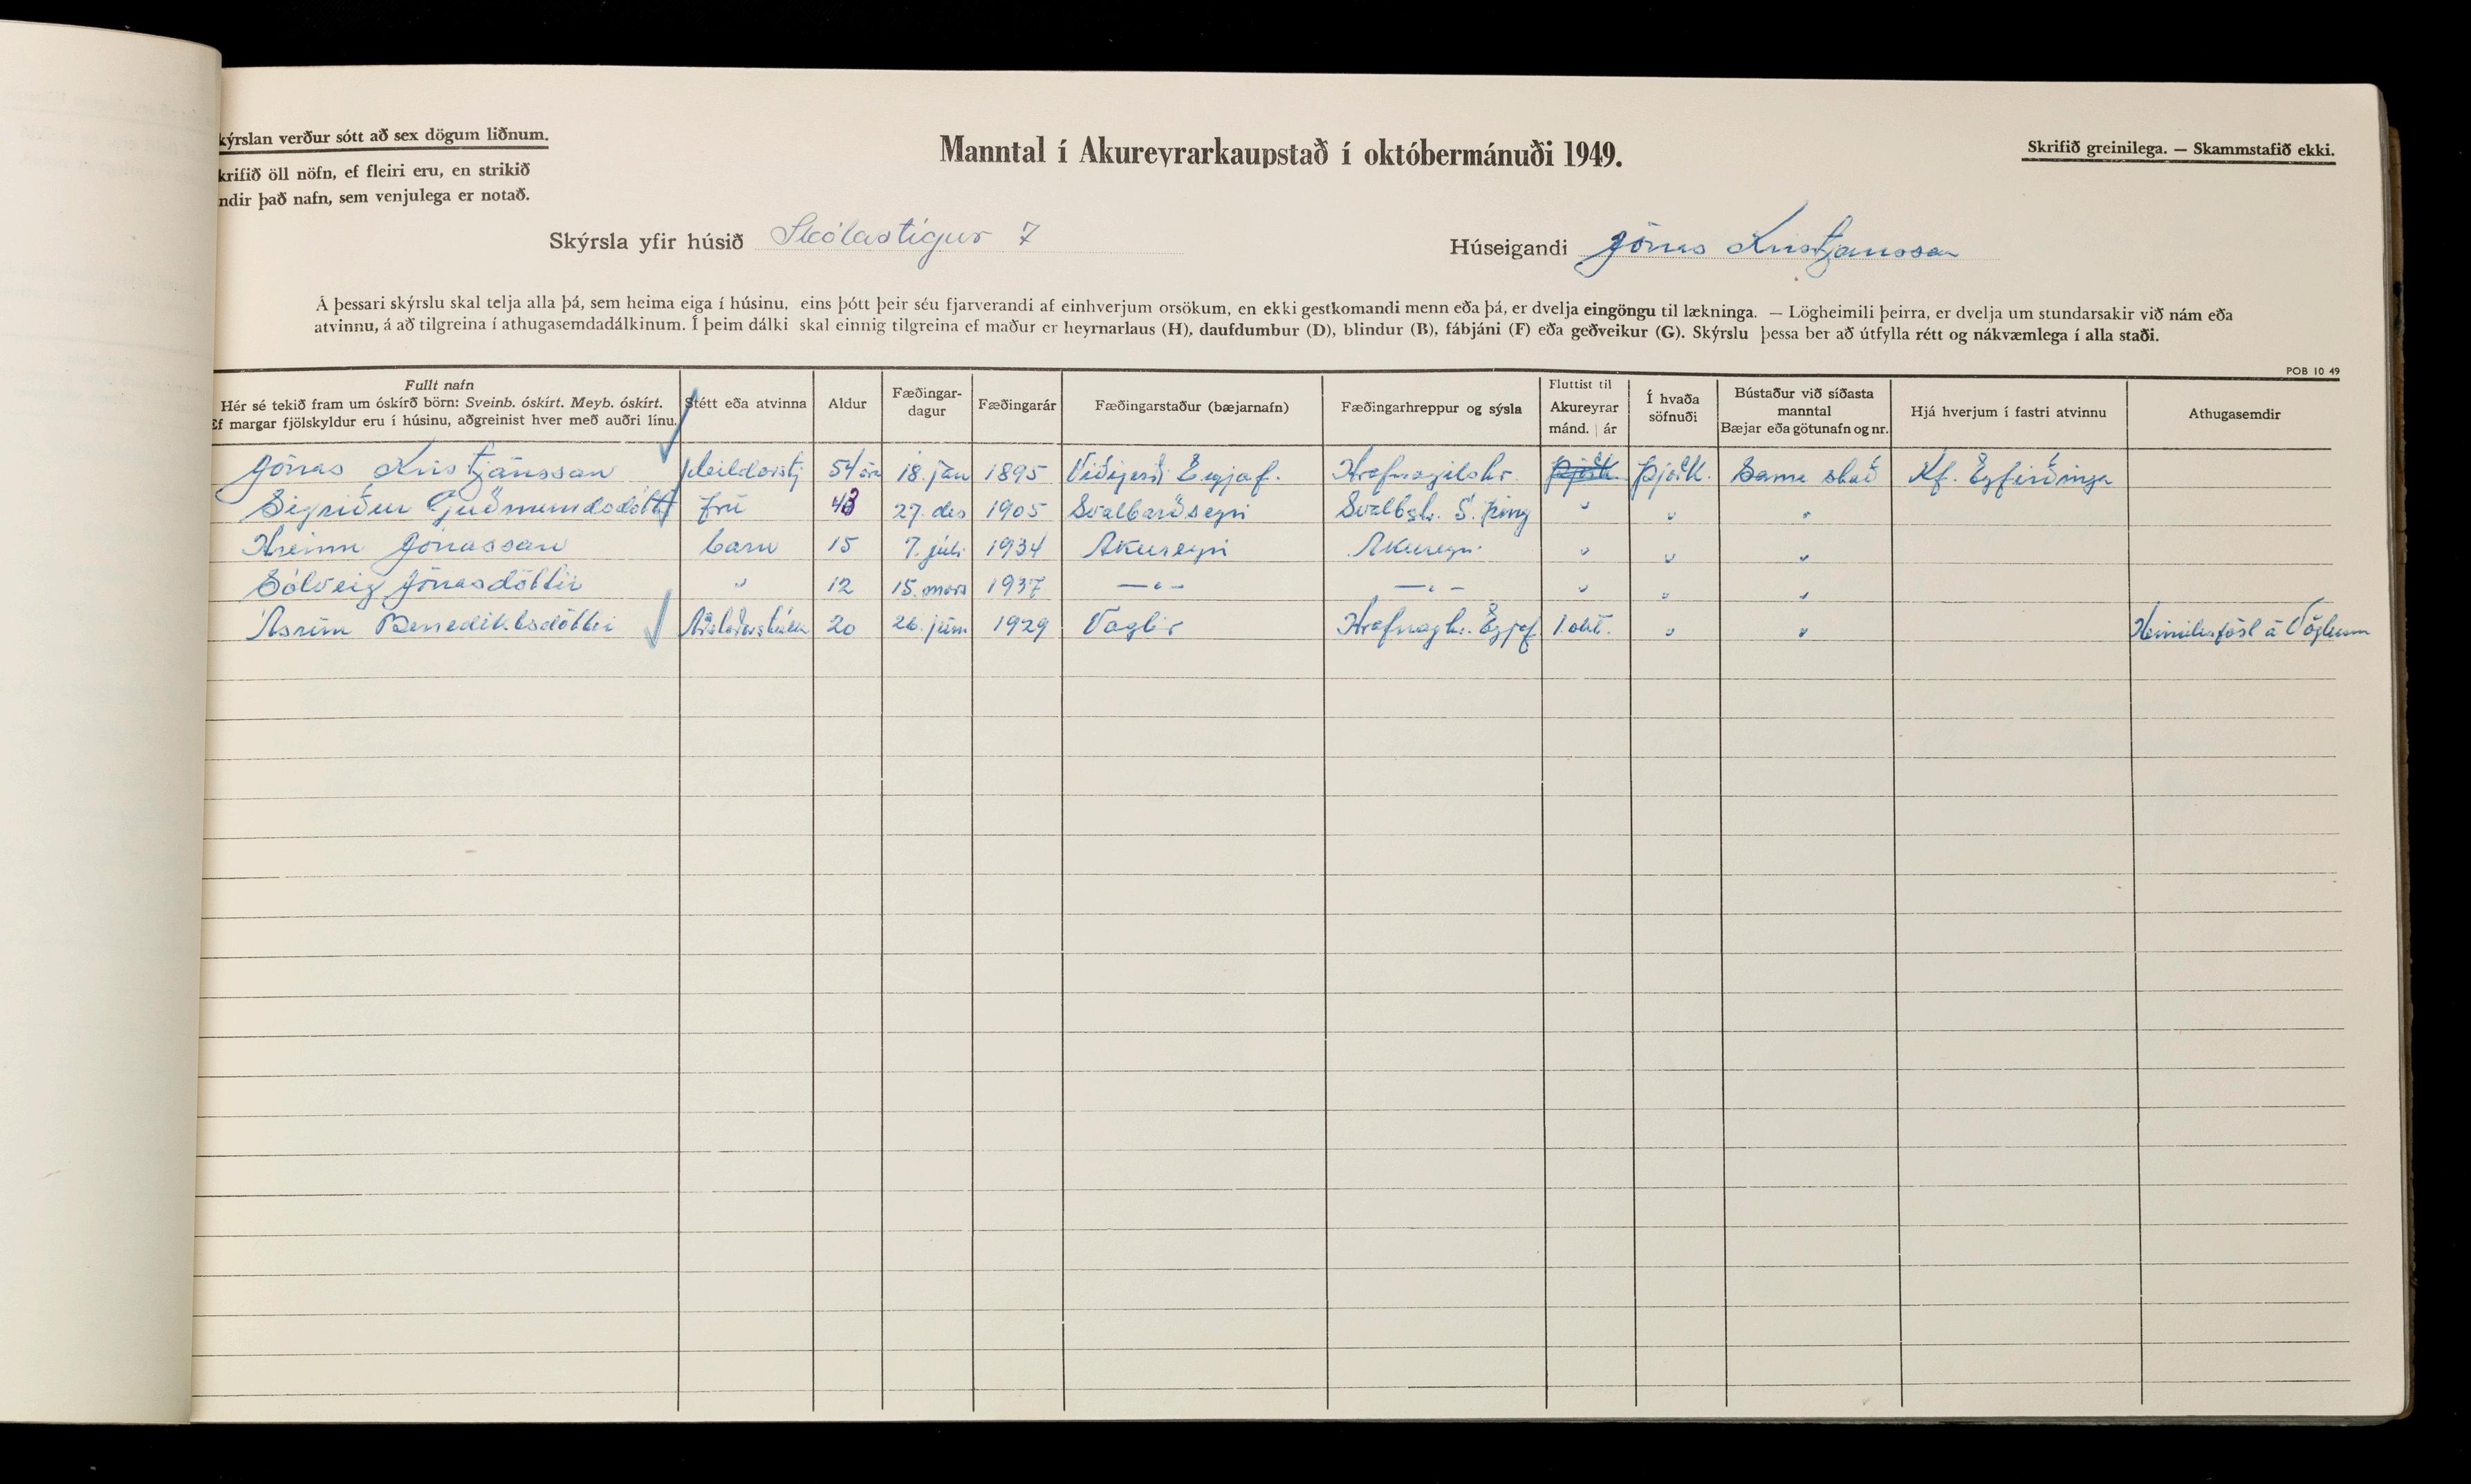 kýrslan verður sótt að sex dögum liðnum.
krifið öll nöfn, ef fleiri eru, en strikið
ndir það nafn, sem venjulega er notað.
Manntal í Akureyrarkaupstað í októbermánuði 1949.
Skrifið greinilega. — Skammstafið ekki.
Skýrsla yfir húsið Skólastígur 7
Húseigandi Jónas Kristjansson
Á þessari skýrslu skal telja alla þá, sem heima eiga í húsinu, eins þótt þeir séu fjarverandi af einhverjum orsökum, en ekki gestkomandi menn eða þá, er dvelja eingöngu til lækninga. — Lögheimili þeirra, er dvelja um stundarsakir við nám eða
atvinnu, á að tilgreina í athugasemdadálkinum. Í þeim dálki skal einnig tilgreina ef maður er heyrnarlaus (H), daufdumbur (D), blindur (B), fábjáni (F) eða geðveikur (G). Skýrslu þessa ber að útfylla rétt og nákvæmlega í alla staði.
POB 10 49
Fullt nafn
Hér sé tekið fram um óskírð börn: Sveinb. óskírt. Meyb. óskírt.
Ef margar fjölskyldur eru í húsinu, aðgreinist hver með auðri línu.
Stétt eða atvinna
Aldur
Fæðingar-
dagur
Fæðingarár
Fæðingarstaður (bæjarnafn)
Fæðingarhreppur og sýsla
Fluttist til
Akureyrar
mánd. | ár
Í hvaða
söfnuði
Bústaður við síðasta
manntal
Bæjar eða götunafn og nr.
Hjá hverjum í fastri atvinnu
Athugasemdir
Jónas Kristjánsson deildarstj 54 ára 18. jan 1895 Víðigerði Eyjaf. Hrafnagilshr. þjóðk. þjóðk. Sama stað Kf. Eyfirðinga
Sigríður Guðmundsdóttir frú 43 27. des 1905 Svalbarðseyri Svalbstr. S. Þing " " "
Hreinn Jónasson barn 15 7. júlí 1934 Akureyri Akureyri " " "
Sólveig Jónasdóttir " 12 15. mars 1937 —"— —"— " " "
Ásrún Benediktsdóttir Aðstoðarstúlka 20 26. júní 1929 Vaglir Hrafnaghr. Eyjaf 1. okt. " " Heimilisföst á Vöglum